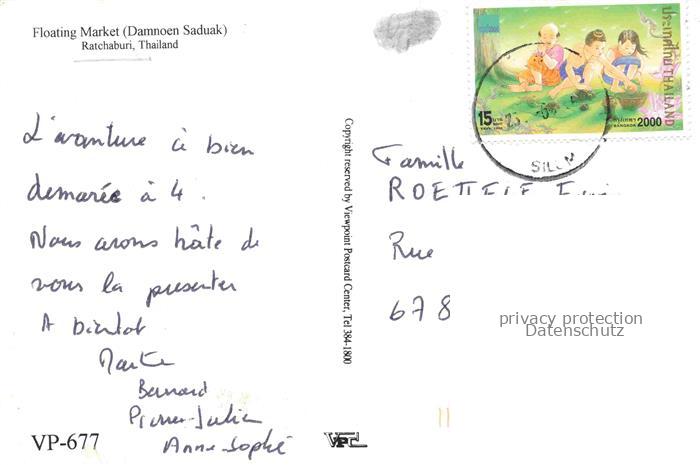 Floating Market (Damnoen Saduak)
Ratchaburi, Thailand
L'avanture à bien
demarée à 4.
Nous avons hâte de
vous la presenter
A bientot
Bernard
Pierre-Julien
Anne-Sophie
VP-677
Copyright reserved by Viewpoint Postcard Center, Tel 384-1800
VPC
ประเทศไทย THAILAND
15 บาท
กรุงเทพฯ
BANGKOK 2000
Famille
Rue
678
privacy protection
Datenschutz